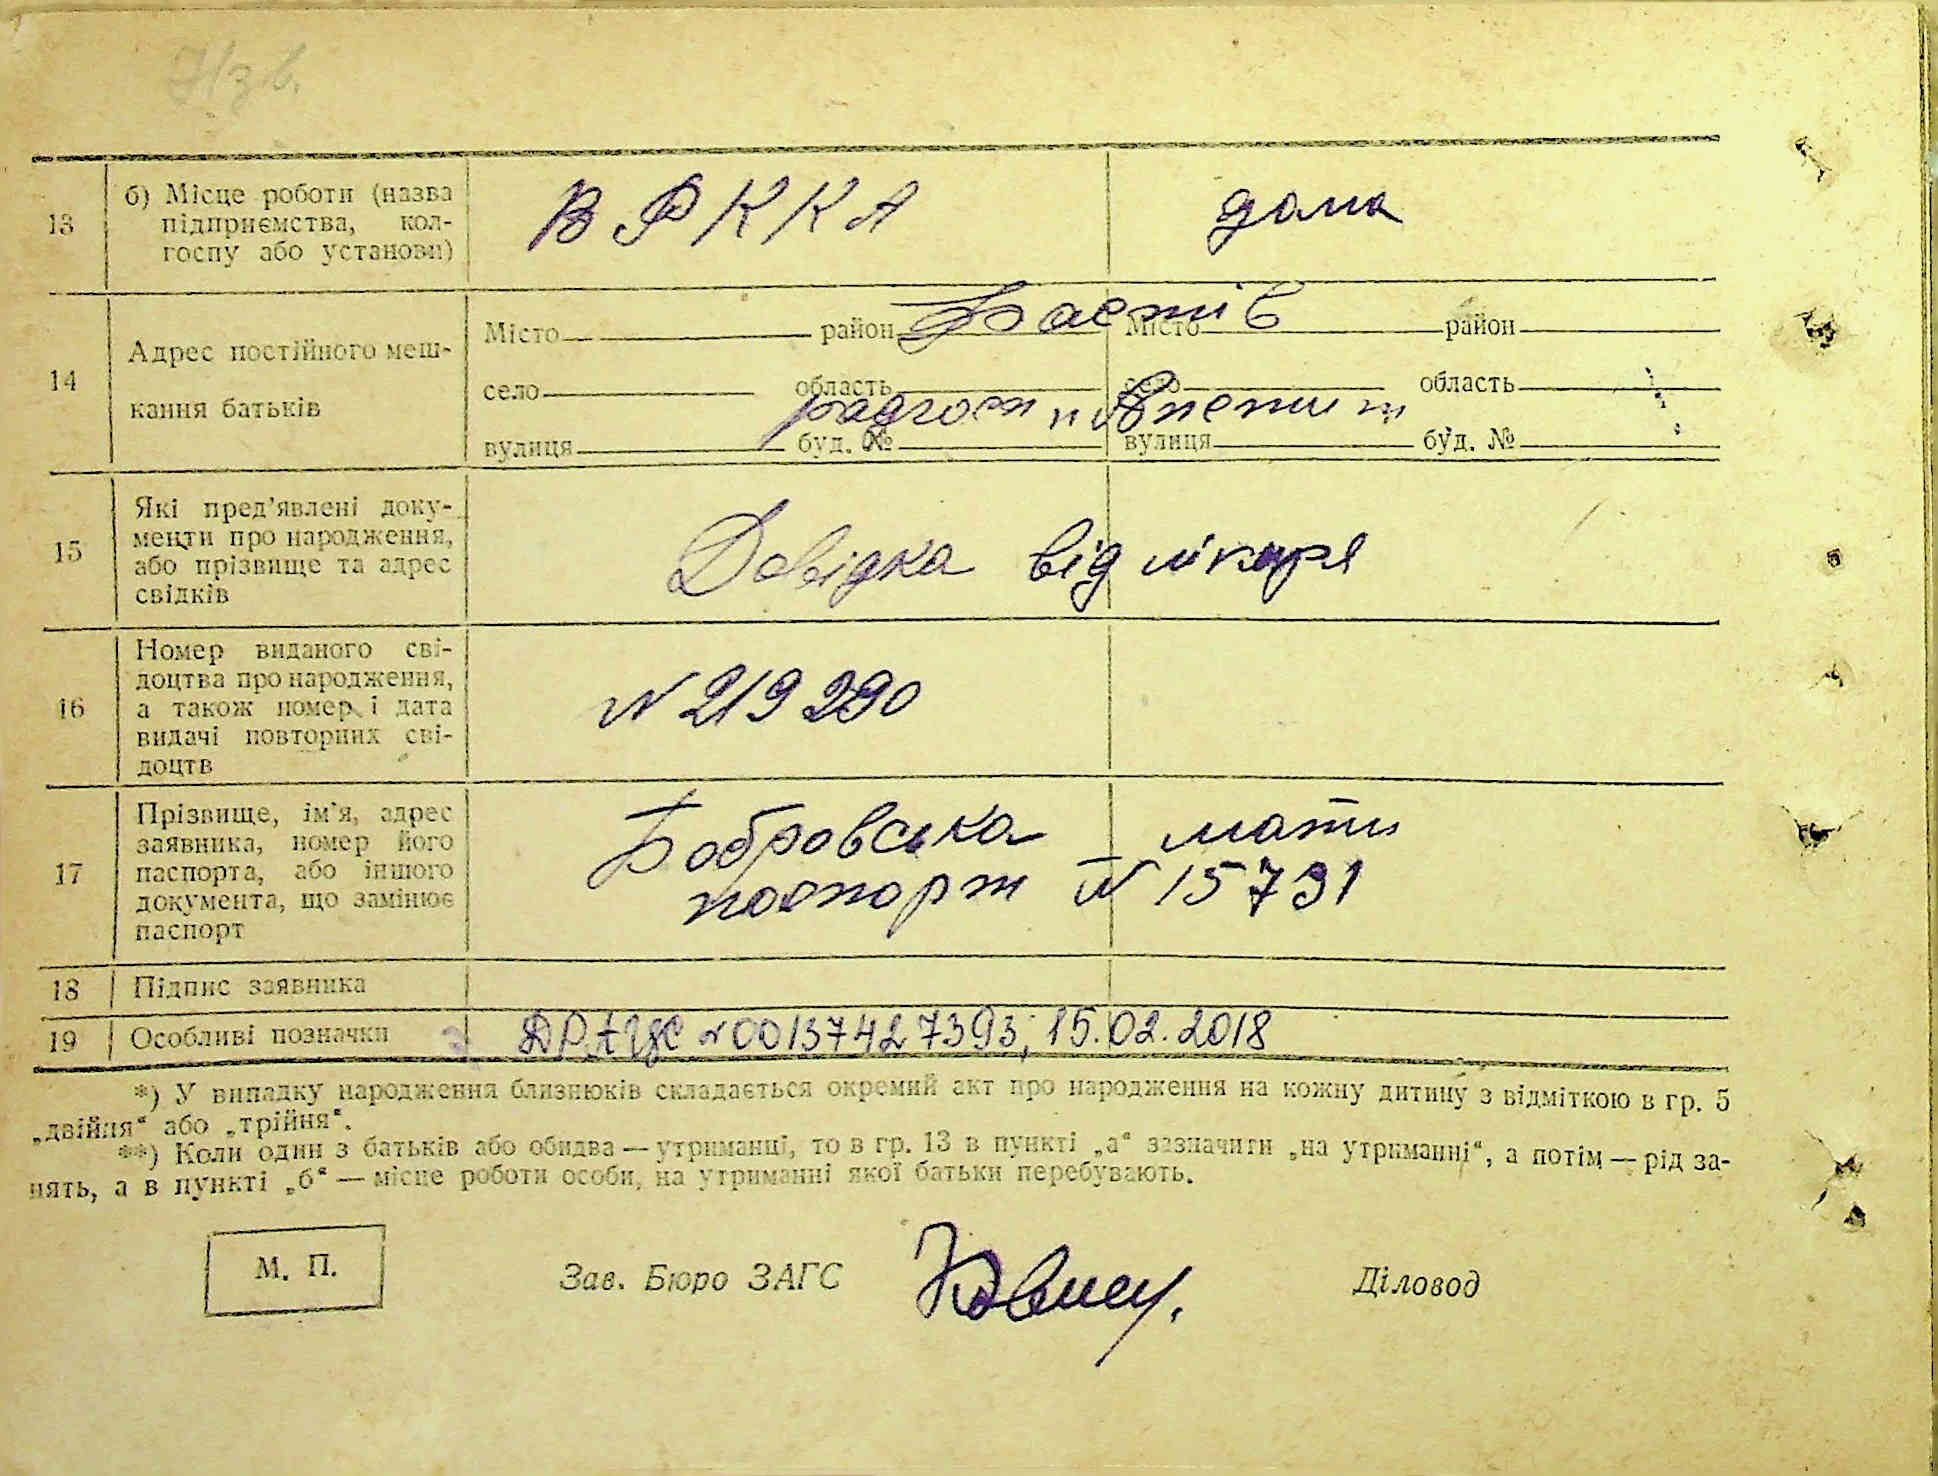 13
б) Місце роботи (назва
підприємства, кол-
госпу або установи)
В РККА
дома
14
Адрес постійного меш-
кання батьків
Місто район Фастів Місто район
село область село область
радгосп
вулиця буд. № вулиця буд. №
15
Які пред'явлені доку-
менти про народження,
або прізвище та адрес
свідків
Довідка від лікаря
16
Номер виданого сві-
доцтва про народження,
а також номер і дата
видачі повторних сві-
доцтв
N 219290
17
Прізвище, ім'я, адрес
заявника, номер його
паспорта, або іншого
документа, що замінює
паспорт
Бобровська мати
паспорт N 15731
18 Підпис заявника
19 Особливі позначки
ДРАЦС N00137427393, 15.02.2018
*) У випадку народження близнюків складається окремий акт про народження на кожну дитину з відміткою в гр. 5
„двійня“ або „трійня“.
**) Коли один з батьків або обидва — утриманці, то в гр. 13 в пункті „а“ зазначити „на утриманні“, а потім — рід за-
нять, а в пункті „б“ — місце роботи особи, на утриманні якої батьки перебувають.
М. П.
Зав. Бюро ЗАГС
Діловод